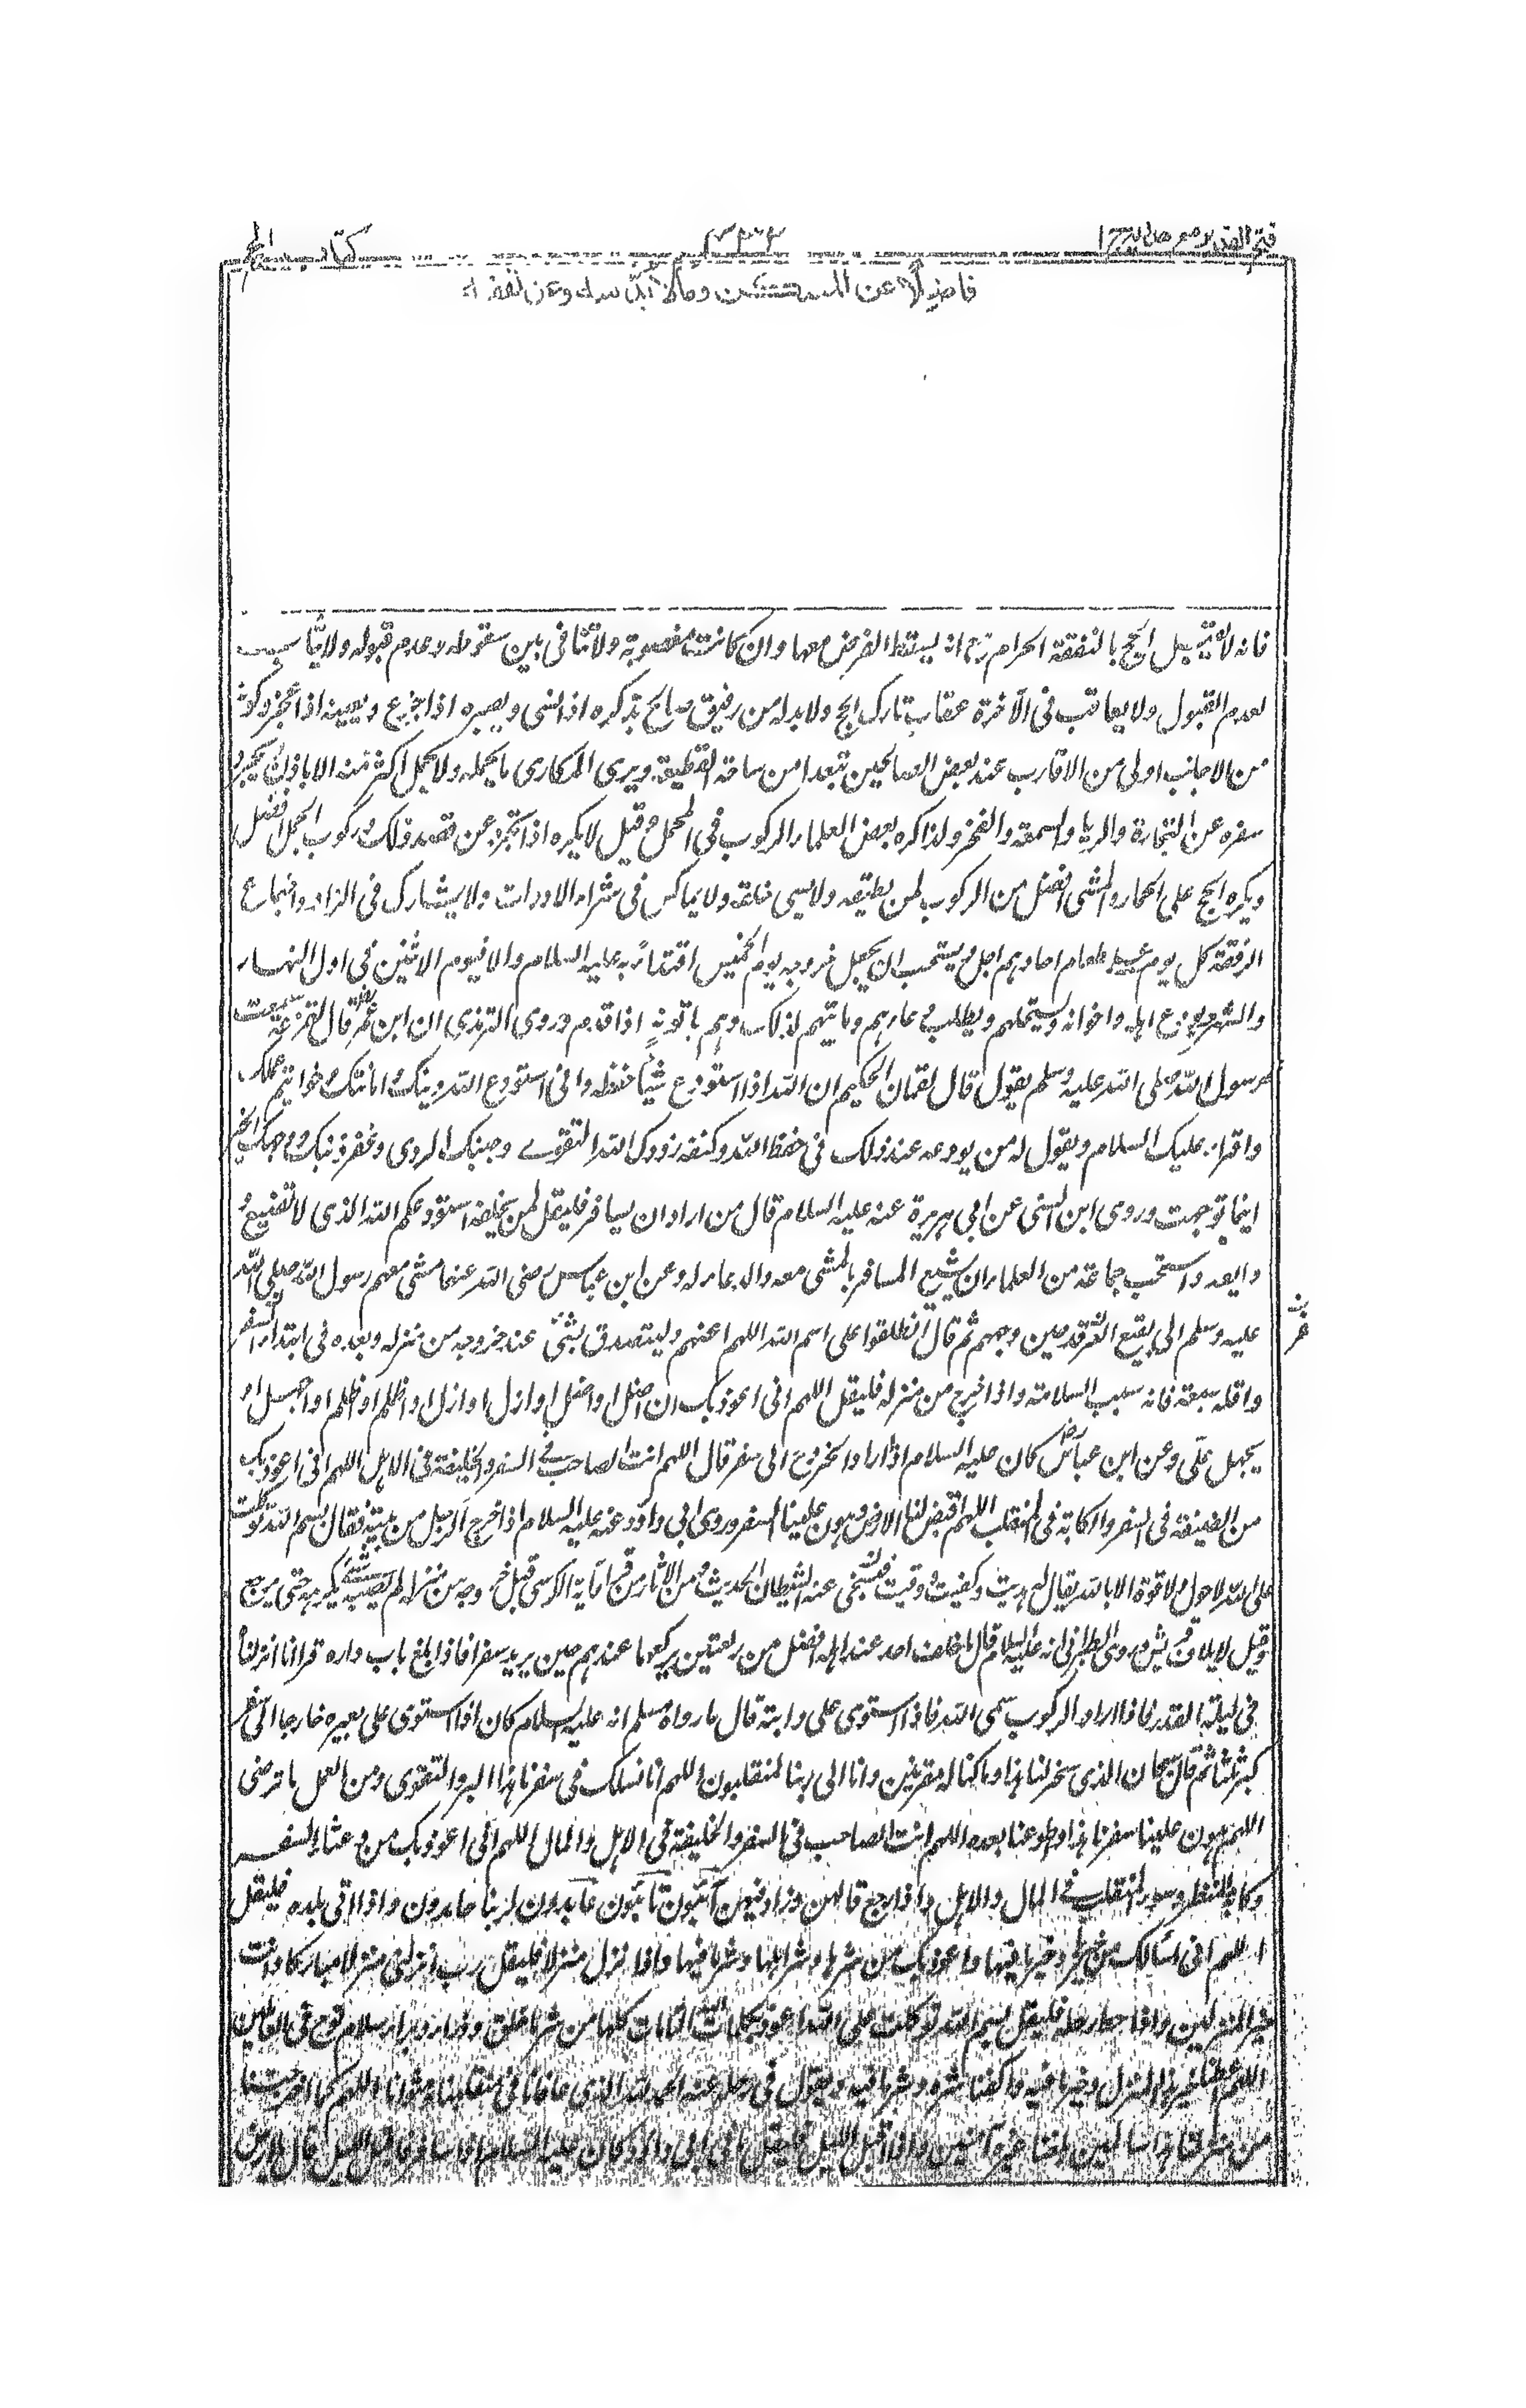 فتح القدير مع هدايه ج ١
كتاب الحج
فاضلا عن المسكن وما لا بد منه وعن نفقة
فانه لا يقبل الحج بالنفقة الحرام مع انه يسقط الفرض معها وان كانت مغصوبة ولا تنافى بين سقوطه وعدم قبوله ولا يثاب
لعدم القبول ولا يعاقب فى الآخرة عقاب تارك الحج ولا بد له من رفيق صالح يذكره اذا نسى ويصبره اذا جزع ويعينه اذا عجز وكونه
من الاجانب اولى من الاقارب عند بعض الصالحين تبعدا من ساحة القطيعة ويرى المكارى ما يحمله ولا يحمل اكثر منه الا باذنه ويجرد
سفره عن التجارة والرياء والسمعة والفخر ولذا كره بعض العلماء الركوب فى المحمل وقيل لا يكره اذا تجرد عن قصد ذلك وركوب الجمل افضل
ويكره الحج على الحمار والمشى افضل من الركوب لمن يطيقه ولا يسى خلقه ولا يماكس فى شراء الادوات ولا يشارك فى الزاد واجتماع
الرفقة كل يوم على طعام احدهم احل ويستحب ان يجعل خروجه يوم الخميس اقتداء به عليه السلام والا فيوم الاثنين فى اول النهار
والشهر ويودع اهله واخوانه ويستحلهم ويطلب دعاءهم وياتيهم لذلك وهم ياتونه اذا قدم وروى الترمذى ان ابن عمر رض قال لقزعة سمعت
رسول الله صلى الله عليه وسلم يقول قال لقمان الحكيم ان الله اذا استودع شيئا حفظه وانى استودع الله دينك وامانتك وخواتيم عملك
واقرأ عليك السلام ويقول له من يودعه عند ذلك فى حفظ الله وكنفه زودك الله التقوى وجنبك الردى وغفر ذنبك ووجهك الخير
اينما توجهت وروى ابن السنى عن ابى هريرة عنه عليه السلام قال من اراد ان يسافر فليقل لمن يخلفه استودعكم الله الذى لا تضيع
ودايعه واستحب جماعة من العلماء ان يشيع المسافر بالمشى معه والدعاء له وعن ابن عباس رضى الله عنهما مشى معهم رسول الله صلى الله
عليه وسلم الى بقيع الغرقد حين وجههم ثم قال انطلقوا على اسم الله اللهم اعنهم وليتصدق بشئ عند خروجه من منزله وبعده فى ابتداء السفر
واقله سبعة فانه سبب السلامة واذا خرج من منزله فليقل اللهم انى اعوذ بك ان اضل او اضل او ازل او ازل او اظلم او اظلم او اجهل او
يجهل على وعن ابن عباس رض كان عليه السلام اذا اراد الخروج الى سفر قال اللهم انت الصاحب فى السفر والخليفة فى الاهل اللهم انى اعوذ بك
من الضيعة فى السفر والكابة فى المنقلب اللهم اقبض لنا الارض وهون علينا السفر وروى ابى داؤد عنه عليه السلام اذا خرج الرجل من بيته فقال بسم الله توكلت
على الله لا حول ولا قوة الا بالله يقال له هديت وكفيت ووقيت فتنحى عنه الشيطان الحديث ومن الآثار من قرأ آية الكرسى قبل خروجه من منزله لم يصبه شئ يكرهه حتى يرجع
وقيل لايلاف قريش وروى الطبرانى انه عليه السلام قال ما خلف احد عند اهله افضل من ركعتين يركعهما عندهم حين يريد سفرا فاذا بلغ باب داره قرأ انا انزلناه
فى ليلة القدر فاذا اراد الركوب سمى الله فاذا استوى على دابته قال ما رواه مسلم انه عليه السلام كان اذا استوى على بعيره خارجا الى سفر
كبر ثلثا ثم قال سبحان الذى سخر لنا هذا وما كنا له مقرنين وانا الى ربنا لمنقلبون اللهم انا نسئلك فى سفرنا هذا البر والتقوى ومن العمل ما ترضى
اللهم هون علينا سفرنا هذا واطو عنا بعده اللهم انت الصاحب فى السفر والخليفة فى الاهل والمال اللهم انى اعوذ بك من وعثاء السفر
وكابة المنظر وسوء المنقلب فى المال والاهل واذا رجع قالهن وزاد فيهن آئبون تائبون عابدون لربنا حامدون واذا اتى بلده فليقل
اللهم انى اسألك من خيرها وخير ما فيها واعوذ بك من شرها وشر اهلها وشر ما فيها واذا نزل منزلا فليقل رب انزلنى منزلا مباركا وانت
خير المنزلين واذا حط رحله فليقل بسم الله توكلت على الله اعوذ بكلمات الله التامات كلها من شر ما خلق وذرأ وبرأ سلام على نوح فى العالمين
اللهم اعطنا خير هذا المنزل وخير ما فيه واكفنا شره وشر ما فيه ويقول فى رحله عنه الحمد لله الذى عافانا فى منقلبنا ومثوانا اللهم كما اخرجتنا
من منزلنا هذا سالمين بلغنا غيره آمنين واذا اقبل الليل فليقل ما فى ابى داؤد كان عليه السلام اذا سافر فاقبل الليل قال يا ارض